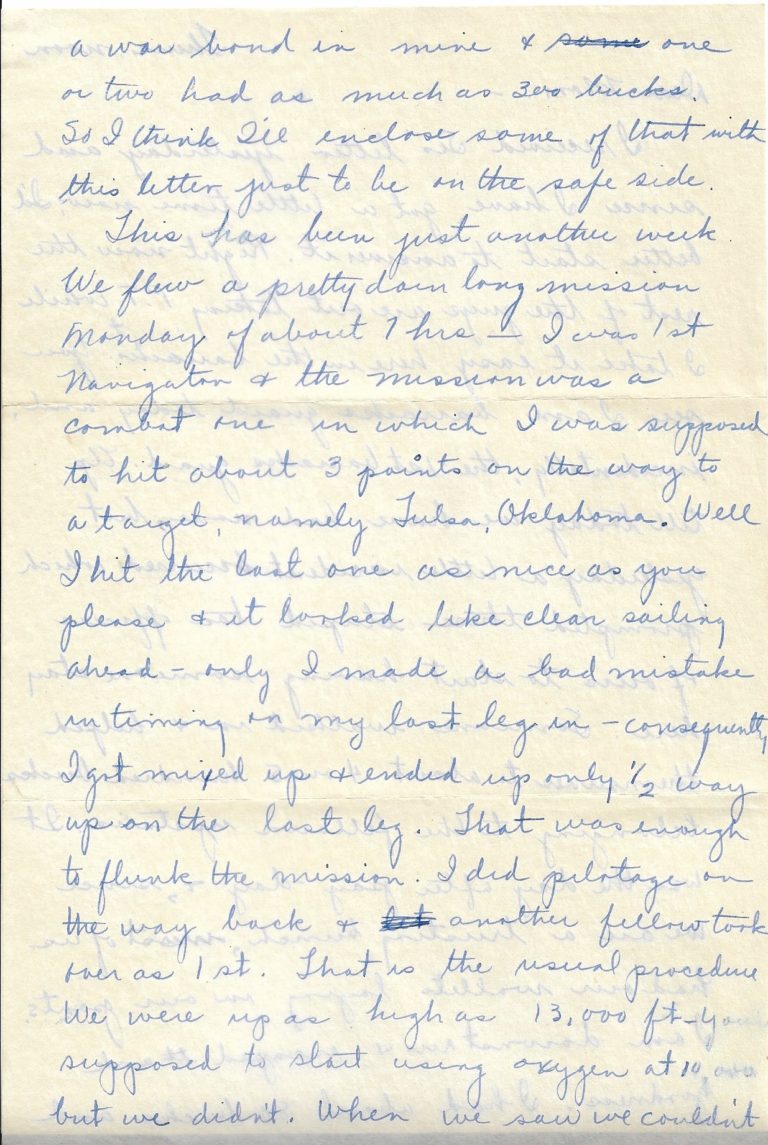 a war bond in mine & some one
or two had as much as 300 bucks.
So I think I'll enclose some of that with
this letter just to be on the safe side.
This has been just another week.
We flew a pretty darn long mission
Monday of about 7 hrs — I was 1st
Navigator & the mission was a
combat one in which I was supposed
to hit about 3 points on the way to
a target, namely Tulsa, Oklahoma. Well
I hit the last one as nice as you
please & it looked like clear sailing
ahead — only I made a bad mistake
in timing on my last leg in — consequently
I got mixed up & ended up only 1/2 way
up on the last leg. That was enough
to flunk the mission. I did pilotage on
the way back & let another fellow took
over as 1st. That is the usual procedure
We were up as high as 13,000 ft — your
supposed to start using oxygen at 10,000
but we didn't. When we saw we couldn't